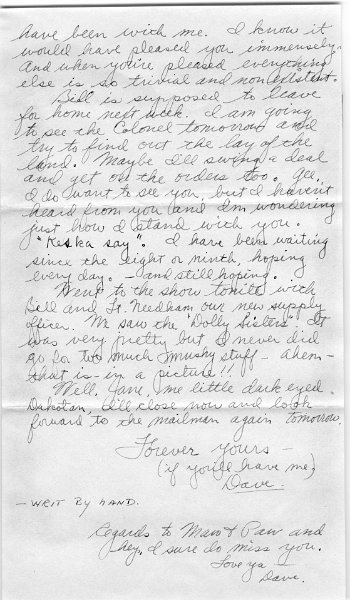 have been with me. I know it
would have pleased you immensely.
And when you're pleased everything
else is so trivial and nonexistent.
Bill is supposed to leave
for home next week. I am going
to see the Colonel tomorrow and
try to find out the lay of the
land. Maybe I'll swing a deal
and get on the orders too. Gee,
I do want to see you, but I haven't
heard from you and I'm wondering
just how I stand with you.
"Keska say". I have been waiting
since the eight or ninth, hoping
every day. I and still hoping.
Went to the show tonite with
Bill and Lt. Needham our new supply
officer. We saw the "Dolly Sisters". It
was very pretty but I never did
go for too much smushy stuff - ahem -
that is - in a picture!!
Well, Jane, me little dark eyed
Dakotan, I'll close now and look
forward to the mailman again tomorrow.
Forever yours -
(if you'll have me)
Dave.
- WRIT BY HAND.
Regards to Maw & Paw and
hey, I sure do miss you.
Love ya
Dave.